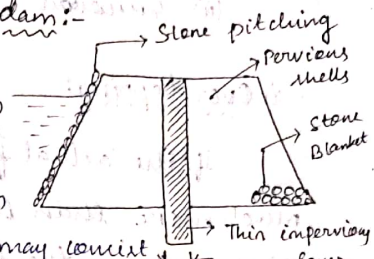 dam:-
Stone pitching
Pervious
shells
Stone
Blanket
Thin impervious
may consist